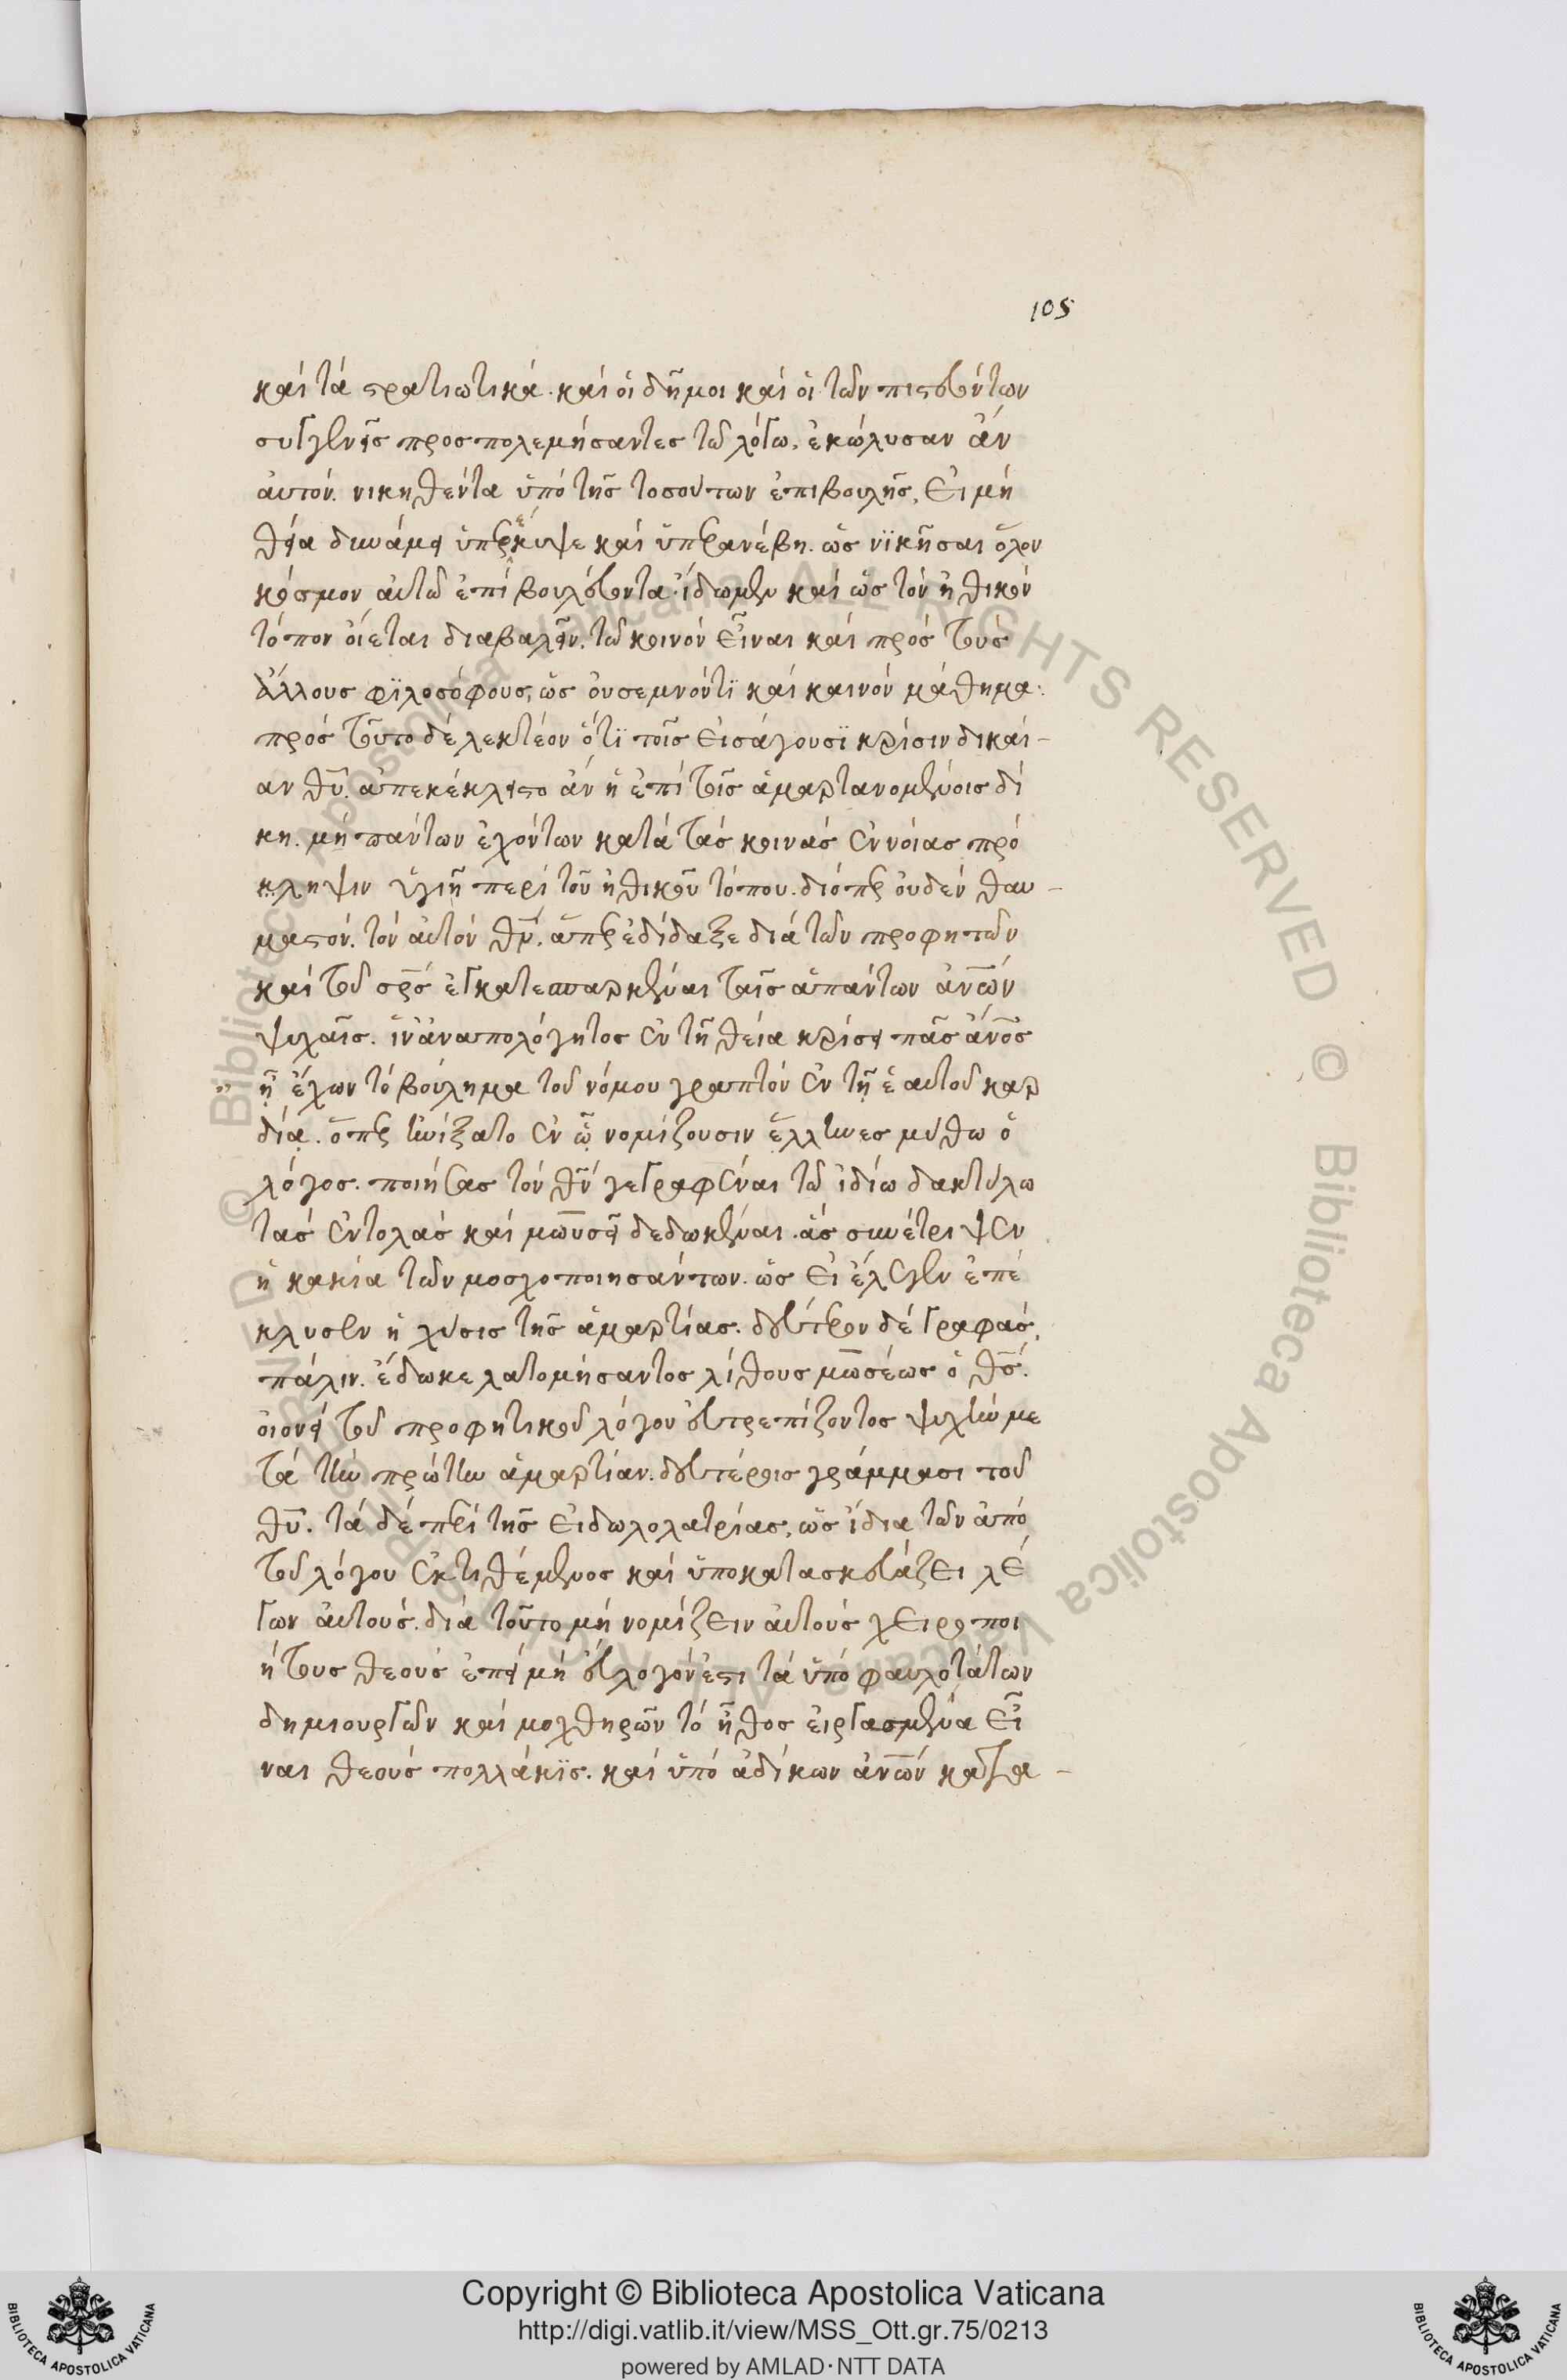 105
καὶ τὰ στρατιωτικά· καὶ οἱ δῆμοι καὶ οἱ τῶν πιστευόντων
συγγενεῖς προσπολεμήσαντες τῶ λόγω, ἐκώλυσαν ἂν
αὐτόν. νικηθέντα ὑπὸ τῆς τοσούτων ἐπιβουλῆς, εἰ μὴ
θεία δυνάμει ὑπερέκυψε καὶ ὑπερανέβη. ὡς νϊκῆσαι ὅλον
κόσμον αὐτῶ ἐπιβουλεύοντα· ἴδωμεν καὶ ὡς τὸν ἠθικὸν
τόπον οἴεται διαβαλεῖν. τῶ κοινὸν εἶναι καὶ πρὸς τοὺς
ἄλλους φϊλοσόφους, ὡς οὐ σεμνόν τϊ καὶ καινὸν μάθημα:
πρὸς τοῦτο δὲ λεκτέον ὅτϊ τοῖς εἰσάγουσϊ κρίσιν δικαί-
αν θῡ. ἀπεκέκλειστο ἂν ἡ ἐπὶ τοῖς ἁμαρτανομένοις δί
κη. μὴ πάντων ἐχόντων κατὰ τὰς κοινὰς ἐννοίας πρό
κληψιν ὑγιῆ περὶ τοῦ ἠθικοῦ τόπου. διόπερ οὐδὲν θαυ-
μαστόν. τὸν αὐτὸν θν̄. ἅπερ ἐδίδαξε διὰ τῶν προφητῶν
καὶ τοῦ σρ̄ς ἐγκατεσπαρκέναι ταῖς ἁπάντων ἀν̄ων
ψυχαῖς. ἵν' ἀναπολόγητος ἐν τῆ θεία κρίσει πᾶς ἀν̄ος
" ῇ ἔχων τὸ βούλημα τοῦ νόμου γραπτὸν ἐν τῇ ἑαυτοῦ καρ
δίᾳ. ὅπερ ἠνίξατο ἐν ᾧ νομίζουσιν ἕλληνες μύθω ὁ
λόγος. ποιήσας τὸν θν̄ γεγραφέναι τῶ ἰδίω δακτύλω
τὰς ἐντολὰς καὶ μω̄υσεῖ δεδωκέναι. ἃς συνέτριψεν
ἡ κακία τῶν μοσχοποιησάντων. ὡς εἰ ἔλεγεν ἐπέ
κλυσεν ἡ χύσις τῆς ἁμαρτίας. δεύτερον δὲ γραφὰς,
πάλιν. ἔδωκε λατομήσαντος λίθους μω̄σέως ὁ θς̄.
οἱονεὶ τοῦ προφητικοῦ λόγου εὐτρεπίζοντος ψυχὴν με
τὰ τὴν πρώτην ἁμαρτίαν. δευτέροις γράμμασι τοῦ
θῡ. τὰ δὲ περὶ τῆς εἰδωλολατρίας, ὡς ἴδια τῶν ἀπὸ
τοῦ λόγου ἐκτιθέμενος καὶ ὑποκατασκευάζει λέ
γων αὐτοὺς. διὰ τοῦτο μὴ νομίζειν αὐτοὺς χειροποι
ήτους θεοὺς ἐπεὶ μὴ εὔλογόν ἐστι τὰ ὑπὸ φαυλοτάτων
δημιουργῶν καὶ μοχθηρῶν τὸ ἦθος εἰργασμένα εἶ
ναι θεούς πολλάκϊς. καὶ ὑπὸ ἀδίκων ἀν̄ων κατα-
Copyright © Biblioteca Apostolica Vaticana
http://digi.vatlib.it/view/MSS_Ott.gr.75/0213
powered by AMLAD·NTT DATA